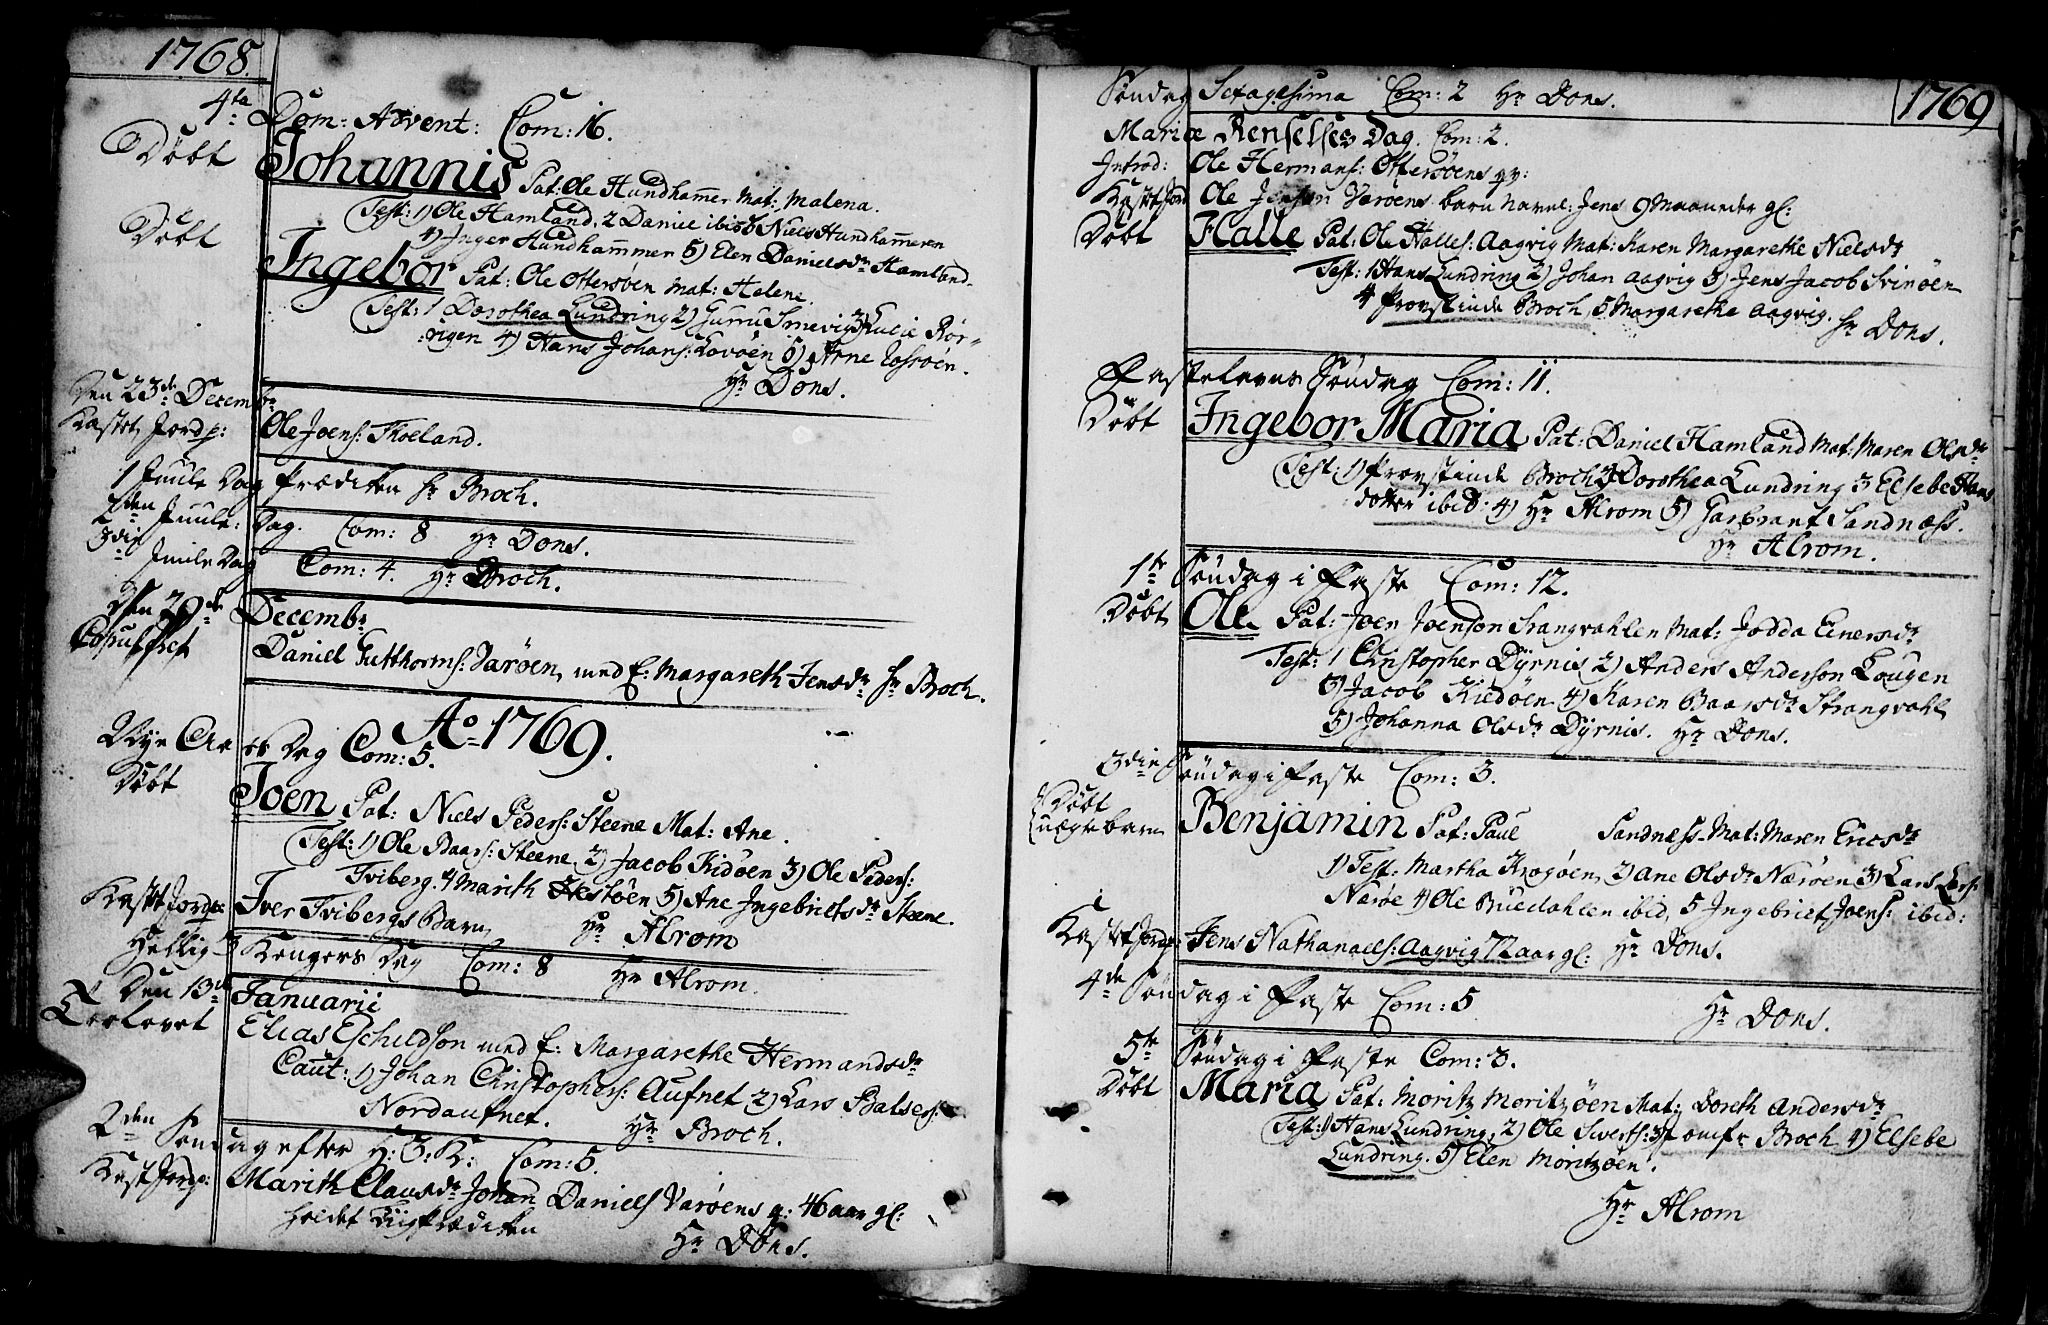 1768.
4ta Dom: Advent: Com: 16.
Døbt Johannis Pat: Ole Hundhammer Mat: Malena.
Test: 1) Ole Hamland, 2 Daniel ibid Niels Hundhammeren
4) Inger Hundhammer 5) Elen Danielsdr Hamland.
Døbt Ingebor Pat: Ole Ottersøen Mat: Helene.
Test: 1 Dorothea Lundring 2) Gurru Smevig 3) Lucie Rør-
:vigen 4) Hans Johans: Lovøen 5) Arne
Hr Dons.
Den 23de Decembr
Kastet Jord p: Ole Joens: Thoeland.
1 Juule Dag Prædiken Hr Broch.
2den Juule: Dag. Com: 8 Hr Dons.
3die Juule Dag Com: 4. Hr Broch.
Den 29de Decembr
Copuleret Daniel Gutthorms: Varøen, med E: Margareth Jensdr Hr Broch.
Ao 1769.
Nye Aars Dag Com: 5.
Døbt Joen Pat: Niels Peders: Steene Mat: Ane.
Test: 1) Ole Baars: Steene 2) Jacob Kidøen 3) Ole Peders:
Tviberg. 4 Marith Hestøen 5) Ane Ingebrietsdr Steene.
Kastet Jord p: Iver Tvibergs Barn, Hr Alrom
Hellig 3 Kongers Dag Com: 8 Hr Alrom.
Den 13de Januarii
Trolovet Elias Eschildson med E: Margarethe Hermandsdr
Caut: 1) Johan Christophers: Aufnet 2) Lars Balsers:
Nordaufnet. Hr Broch.
2den Søndag efter H: 3: K: Com: 5.
Kast Jord p: Marith Clausdr Johan Daniels Varøens q: 46 aar gl:
holdet Liigprædiken Hr Dons.
1769
Søndag Sexagesima Com: 2 Hr Dons.
Mariæ Renselses Dag. Com: 2.
Introd: Ole Hermans: Ottersøens qv:
Kastet Jord Ole Jenson Varøens barn navnl: Jens 9 Maaneder gl:
Døbt Halle Pat: Ole Halles: Aagvig Mat: Karen Margarethe Nielsdr
Test: 1 Hans Lundring 2) Johan Aagvig 3) Jens Jacob Svinøen
4 Provstinde Broch 5 Margarethe Aagvig. Hr Dons.
Fastelavns Søndag Com: 11.
Døbt Ingebor Maria Pat: Daniel Hamland Mat: Maren Olsdr
Test: 1) Provstinde Broch 2 Dorothea Lundring 3 Elsebe Hans
dotter ibid: 4) Hr Alrom 5) Garbrant Sandness.
Hr Alrom.
1te Søndag i Faste Com: 12.
Døbt Ole Pat: Joen Joenson Strangvahlen Mat: Jodda Einersdr
Test: 1 Christopher Dyrnis 2) Anders Anderson Lougen
3) Jacob Kiedøen 4) Karen Baarsdr Strangvahl
5) Johanna Olsdr Dyrnis. Hr Dons.
3die Søndag i Faste Com: 3.
Døbt uægte barn Benjamin Pat: Paul Sandness Mat: Maren Ericsdr
1) Test: Martha Krogøen 2) Ane Olsdr Nærøen 3) Lars Lars:
Narøe 4) Ole Buedahlen ibid, 5 Ingebriet Joens: ibid:
Kastet Jord p: Jens Nathanaels: Aagvig 72 aar gl: Hr Dons.
4de Søndag i Faste Com: 5 Hr Dons.
5te Søndag i Faste Com: 3.
Døbt Maria Pat: Moritz Moritzøen Mat: Doreth Andersdr
Test: 1) Hans Lundring, 2) Ole Sverts: 3) Jomfr Broch 4) Elsebe
Lundring. 5) Elen Moritzøen.
Hr Alrom